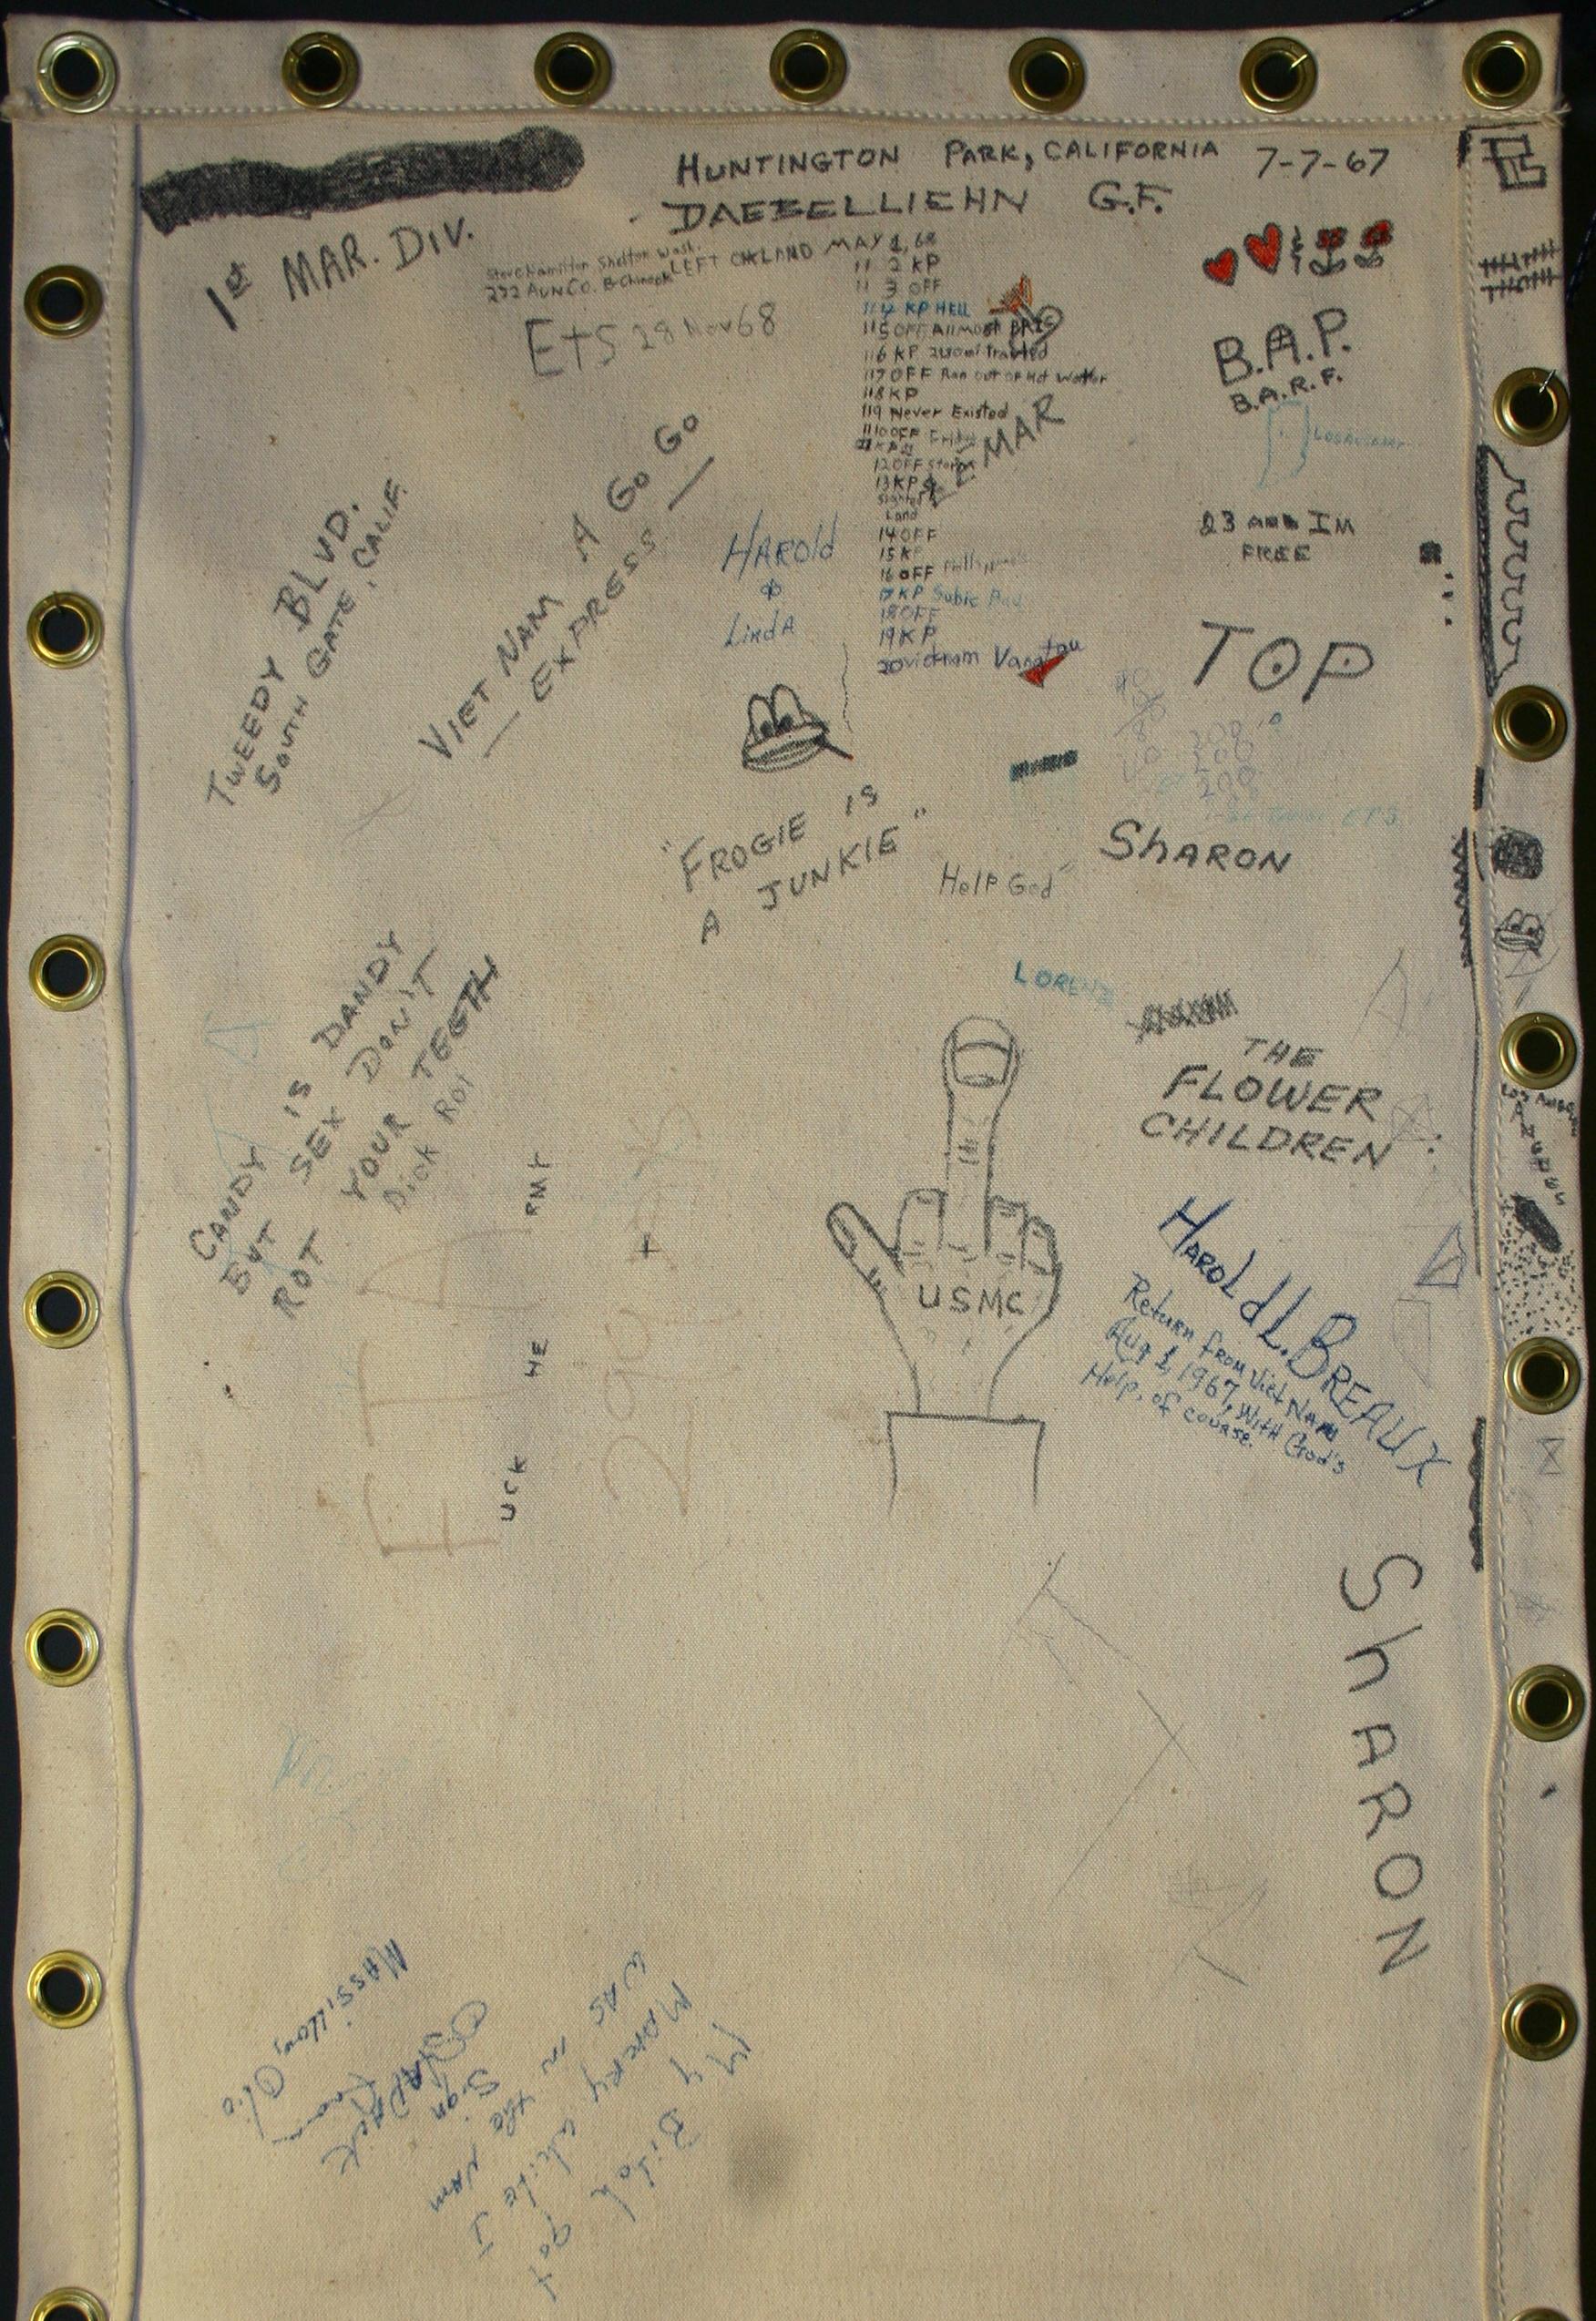 HUNTINGTON PARK, CALIFORNIA 7-7-67
DAEBELLIEHN G.F.
1st MAR. DIV.
Steve Hamilton Shelton Wash.
272 AVN CO. B Chinook
LEFT OAKLAND MAY 1, 68
11 2 KP
11 3 OFF
11 4 KP HELL
11 5 OFF Allmost
11 6 KP
11 7 OFF Ran out of Hot Watter
11 8 KP
11 9 Never Existed
11 10 OFF Friday
11 KP
12 OFF Storm
13 KP
Sighted
Land
14 OFF
15 KP
16 OFF
17 KP Subic
18 OFF
19 KP
20 vietnam Vangtau
ETS 28 Nov 68
B.A.P.
B.A.R.F.
1st MAR
23 AND IM
FREE
TWEEDY BLVD.
SOUTH GATE, CALIF.
VIET NAM A GO GO
EXPRESS
HAROLD
&
LINDA
TOP
200
200
200
ETS
"FROGIE IS
A JUNKIE"
Help God
SHARON
LORENZ
CANDY IS DANDY
BUT SEX DON'T
ROT YOUR TEETH
Dick Rot
THE
FLOWER
CHILDREN
UCK HE RMY
USMC
HAROLD L. BREAUX
Return from Viet Nam
Aug 1, 1967, With God's
Help, of course.
SHARON
My Bitch got
Married while I
was in the Nam
Sign
Massillon, Ohio